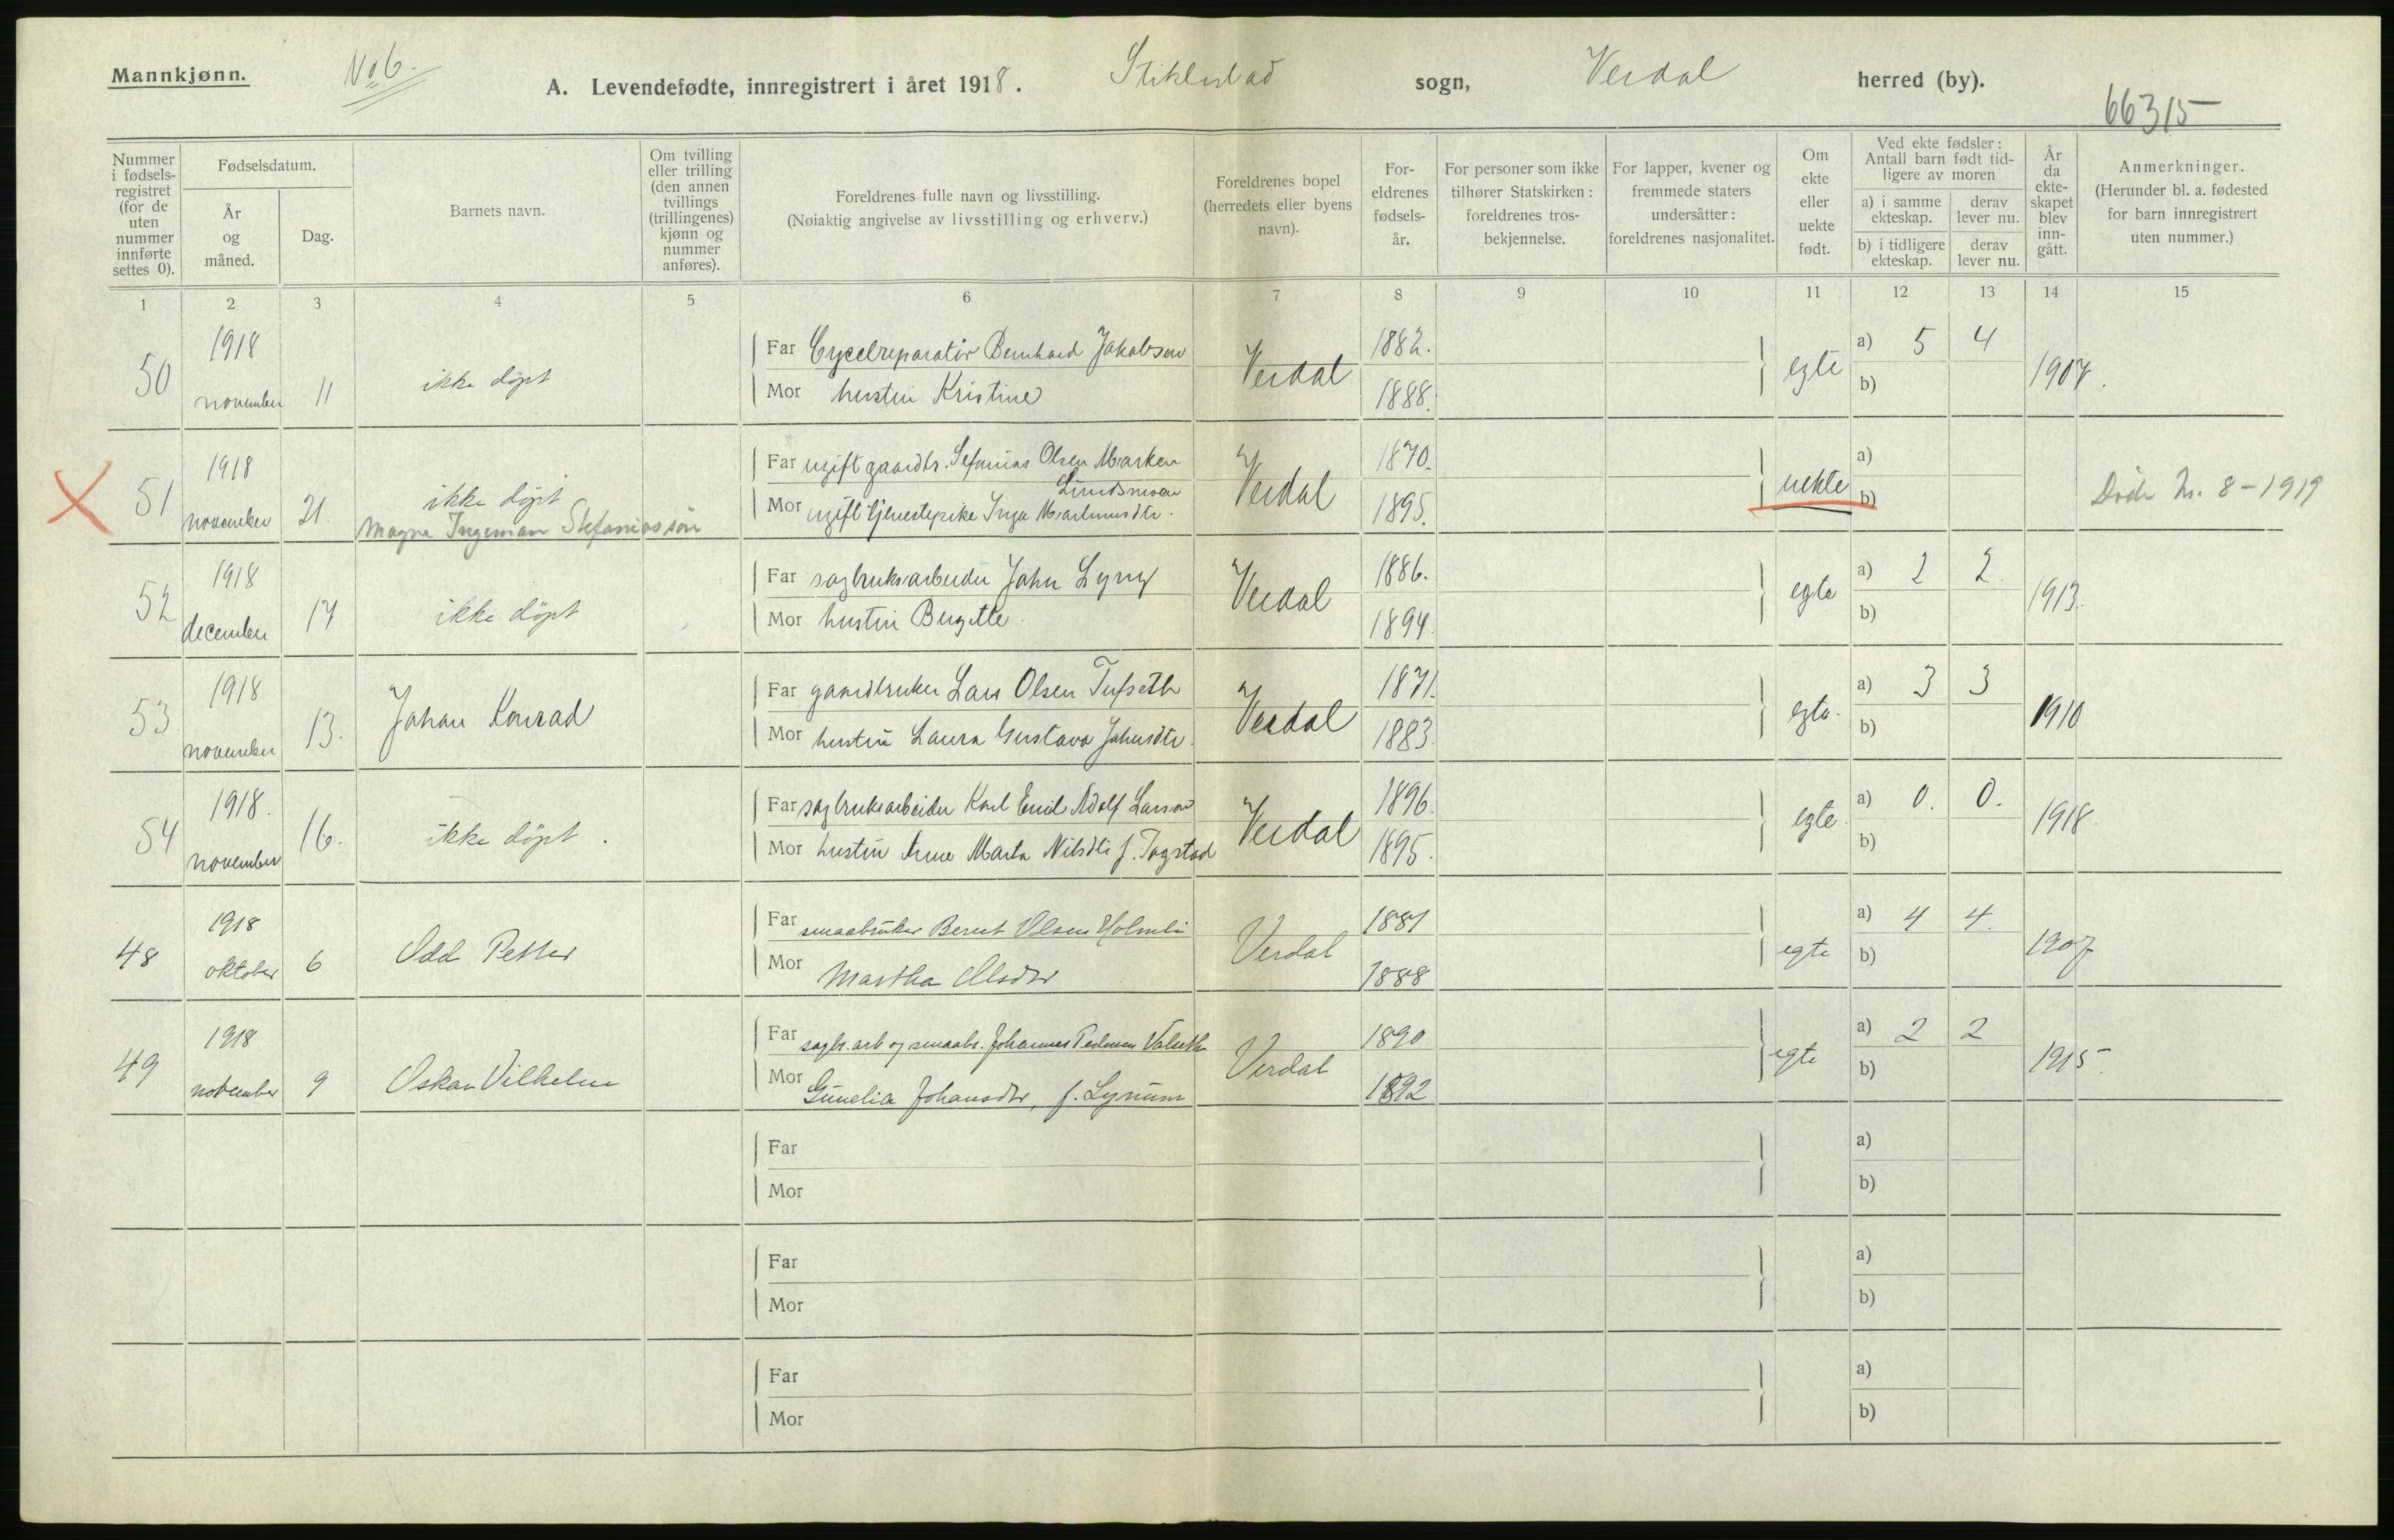 Mannkjønn.
No 6.
A. Levendefødte, innregistrert i året 1918. Stiklestad sogn, Verdal herred (by).
66315
Nummer i fødsels-registret (for de uten nummer innførte settes 0).
Fødselsdatum.
År og måned.
Dag.
Barnets navn.
Om tvilling eller trilling (den annen tvillings (trillingenes) kjønn og nummer anføres).
Foreldrenes fulle navn og livsstilling.
(Nøiaktig angivelse av livsstilling og erhverv.)
Foreldrenes bopel (herredets eller byens navn).
For-eldrenes fødsels-år.
For personer som ikke tilhører Statskirken: foreldrenes tros-bekjennelse.
For lapper, kvener og fremmede staters undersåtter: foreldrenes nasjonalitet.
Om ekte eller uekte født.
Ved ekte fødsler: Antall barn født tid-ligere av moren
a) i samme ekteskap.
derav lever nu.
b) i tidligere ekteskap.
derav lever nu.
År da ekte-skapet blev inn-gått.
Anmerkninger.
(Herunder bl. a. fødested for barn innregistrert uten nummer.)
1 2 3 4 5 6 7 8 9 10 11 12 13 14 15
50 1918 november 11 ikke döpt
Far Cycelreparatör Bernhard Jakobsen Verdal 1882. egte a) 5 4 1907.
Mor hustru Kristine 1888. b)
51 1918 november 21. ikke döpt
Magne Ingeman Stefaniassön
Far ugift gaardbr. Stefanias Olsen Marken Verdal 1870. uekte a)
Lundsmoen
Mor ugift tjenestepike Inga 1895. b)
Døde Nr. 8-1919
52 1918 december 17 ikke döpt
Far sagbruksarbeider John Lyng Verdal 1886. egte a) 2 2. 1913.
Mor hustru Bergitte. 1894. b)
53 1918 november 13. Johan Konrad
Far gaardbruker Lars Olsen Tufseth Verdal 1871. egte. a) 3 3 1910
Mor hustru Laura Gustava Johnsdtr. 1883. b)
54 1918. november 16. ikke döpt.
Far sagbruksarbeider Karl Emil Adolf Larsen Verdal 1896. egte. a) 0. 0. 1918.
Mor hustru Anne Marta Nilsdtr f. Tøgstad 1895. b)
48 1918 oktober 6 Odd Petter
Far smaabruker Bernt Olsen Holmli Verdal 1881 egte a) 4 4. 1907
Mor Martha Olsdtr 1888 b)
49 1918 november 9 Oskar Vilhelm
Far sagbr. arb og smaabr. Johannes Pedersen Valseth Verdal 1890 egte a) 2 2 1915.
Mor Gunelia Johansdtr, f. Lynum 1892 b)
Far a)
Mor b)
Far a)
Mor b)
Far a)
Mor b)